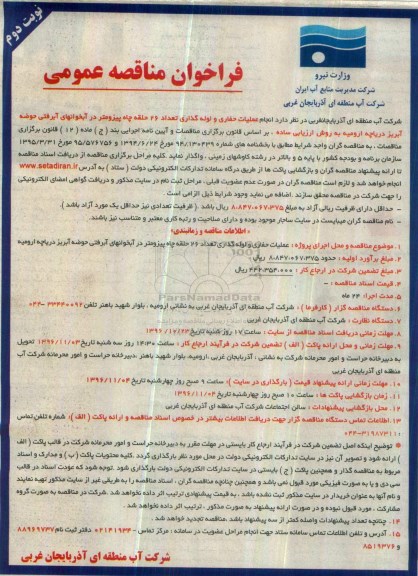 نوبت دوم
وزارت نیرو
شرکت مدیریت منابع آب ایران
شرکت آب منطقه ای آذربایجان غربی
فراخوان مناقصه عمومی
شرکت آب منطقه ای آذربایجانغربی در نظر دارد انجام عملیات حفاری و لوله گذاری تعداد ۲۶ حلقه چاه پیزومتر در آبخوانهای آبرفتی حوضه
آبریز دریاچه ارومیه به روش ارزیابی ساده . بر اساس قانون برگزاری مناقصات و آیین نامه اجرایی بند ( ج ) ماده ( ۱۲ ) قانون برگزاری
مناقصات ، به مناقصه گران واجد شرایط مطابق با بخشنامه های شماره
سازمان برنامه و بودجه کشور با پایه ۵ و بالاتر در رشته کاوشهای زمینی ، واگذار نماید . کلیه مراحل برگزاری مناقصه از دریافت اسناد مناقصه
تا ارائه پیشنهاد مناقصه گران و بازگشایی پاکت ها از طریق درگاه سامانه تدارکات الکترونیکی دولت ( ستاد ) به آدرس www.setadiran.ir
انجام خواهد شد و لازم است مناقصه گران در صورت عدم عضویت قبلی ، مراحل ثبت نام در سایت مذکور و دریافت گواهی امضای الکترونیکی
را جهت شرکت در مناقصه محقق سازند . اضافه می نماید وجود شرایط ذیل الزامی است .
- حداقل دارای ظرفیت ریالی آزاد به مبلغ ۸.۸۴۷.۰۶۷.۳۷۵ ریال باشد . ( ظرفیت تعدادی نیز حداقل یک مورد آزاد باشد ).
- نام مناقصه گران میبایست در سایت ساجار موجود بوده و دارای صلاحیت و رتبه کاری معتبر و متناسب نیز باشند .
- (اطلاعات مناقصه و زمانبندی)
۱ . موضوع مناقصه و محل اجرای پروژه : عملیات حفاری و لوله گذاری تعداد ۲۶ حلقه چاه پیزومتر در آبخوانهای آبرفتی حوضه آبریز دریاچه ارومیه
۲ . مبلغ برآورد اولیه : حدود ۸.۸۴۷.۰۶۷.۳۷۵ ریال
۳ . مبلغ تضمین شرکت در ارجاع کار : ۴۴۲.۳۵۴.۰۰۰ ریال
۴ . قیمت اسناد مناقصه : -
۵ . مدت اجرا: ۲۴ ماه
۶ . دستگاه مناقصه گزار ( کارفرما ) : شرکت آب منطقه ای آذربایجان غربی به نشانی ارومیه ، بلوار شهید باهنر تلفن
۷ . دستگاه نظارت : شرکت آب منطقه ای آذربایجان غربی .
۸ . مهلت زمانی دریافت اسناد مناقصه از سایت : ساعت ۱۷ روز شنبه تاریخ
۹ . مهلت زمانی و محل ارائه پاکت ( الف ) تضمین شرکت در فرآیند ارجاع کار : ساعت ۱۴:۳۰ روز سه شنبه تاریخ ۱۳۹۶/۱۱/۰۳ تحویل
به دبیرخانه حراست و امور محرمانه شرکت به نشانی : آذربایجان غربی ، ارومیه، بلوار شهید باهنر ،دبیرخانه حراست و امور محرمانه شرکت آب
منطقه ای آذربایجان غربی
۱۰ . مهلت زمانی ارائه پیشنهاد قیمت ( بارگذاری در سایت ): ساعت ۹ صبح روز چهارشنبه تاریخ ۱۳۹۶/۱۱/۰۴
۱۱ . زمان بازگشایی پاکت ها : ساعت ۱۰ صبح روز چهارشنبه تاریخ ۱۳۹۶/۱۱/۰۴
۱۲ . محل بازگشایی پیشنهادات : سالن اجتماعات شرکت آب منطقه ای آذربایجان غربی
۱۳ . اطلاعات تماس دستگاه مناقصه گزار جهت دریافت اطلاعات بیشتر در خصوص اسناد مناقصه و ارائه پاکت ( الف )، شماره تلفن تماس
۰۴۴-۳۱۹۸۷۳۱۰
توضیح اینکه اصل تضمین شرکت در فرآیند ارجاع کار بایستی در مهلت مقرر به دبیرخانه حراست و امور محرمانه شرکت در قالب پاکت ( الف
) ارائه شود و تصویر آن نیز در سایت تدارکات الکترونیکی دولت در محل مورد نظر بارگذاری گردد . کلیه محتویات پاکت ( ب ) و مدارک و اسناد
مربوط به مناقصه گذار و همچنین پاکت ( ج ) بایستی در سایت تدارکات الکترونیکی دولت بارگذاری شود . توجه شود که عودت اسناد در قالب
سی دی و یا به صورت فیزیکی مورد قبول نمی باشد و همچنین چنانچه مناقصه گران ، اسناد مناقصه را به طریقی غیر از سایت مذکور تهیه نمایند
و نام آنها به عنوان خریدار در سایت مذکور ثبت نشده باشد ، به قیمت پیشنهادی ترتیب اثر داده نخواهد شد .شرکت در مناقصه به صورت گروه
مشارکت ، مورد قبول نبوده و در صورت ارائه پیشنهاد به صورت مذکور ، ترتیب اثر داده نخواهد شد .
۱۴ . چنانچه تعداد پیشنهادات واصله کمتر از سه پیشنهاد باشد .مناقصه تجدید خواهد شد .
۱۵ . آدرس و تلفن اطلاعات تماس سامانه ستاد جهت انجام مراحل عضویت در سامانه : مرکز تماس - ۰۲۱۴۱۹۳۴ دفتر ثبت نام ۸۸۹۶۹۷۳۷
و ۸۵۱۹۳۷۶
شرکت آب منطقه ای آذربایجان غربی
ParsNamadData